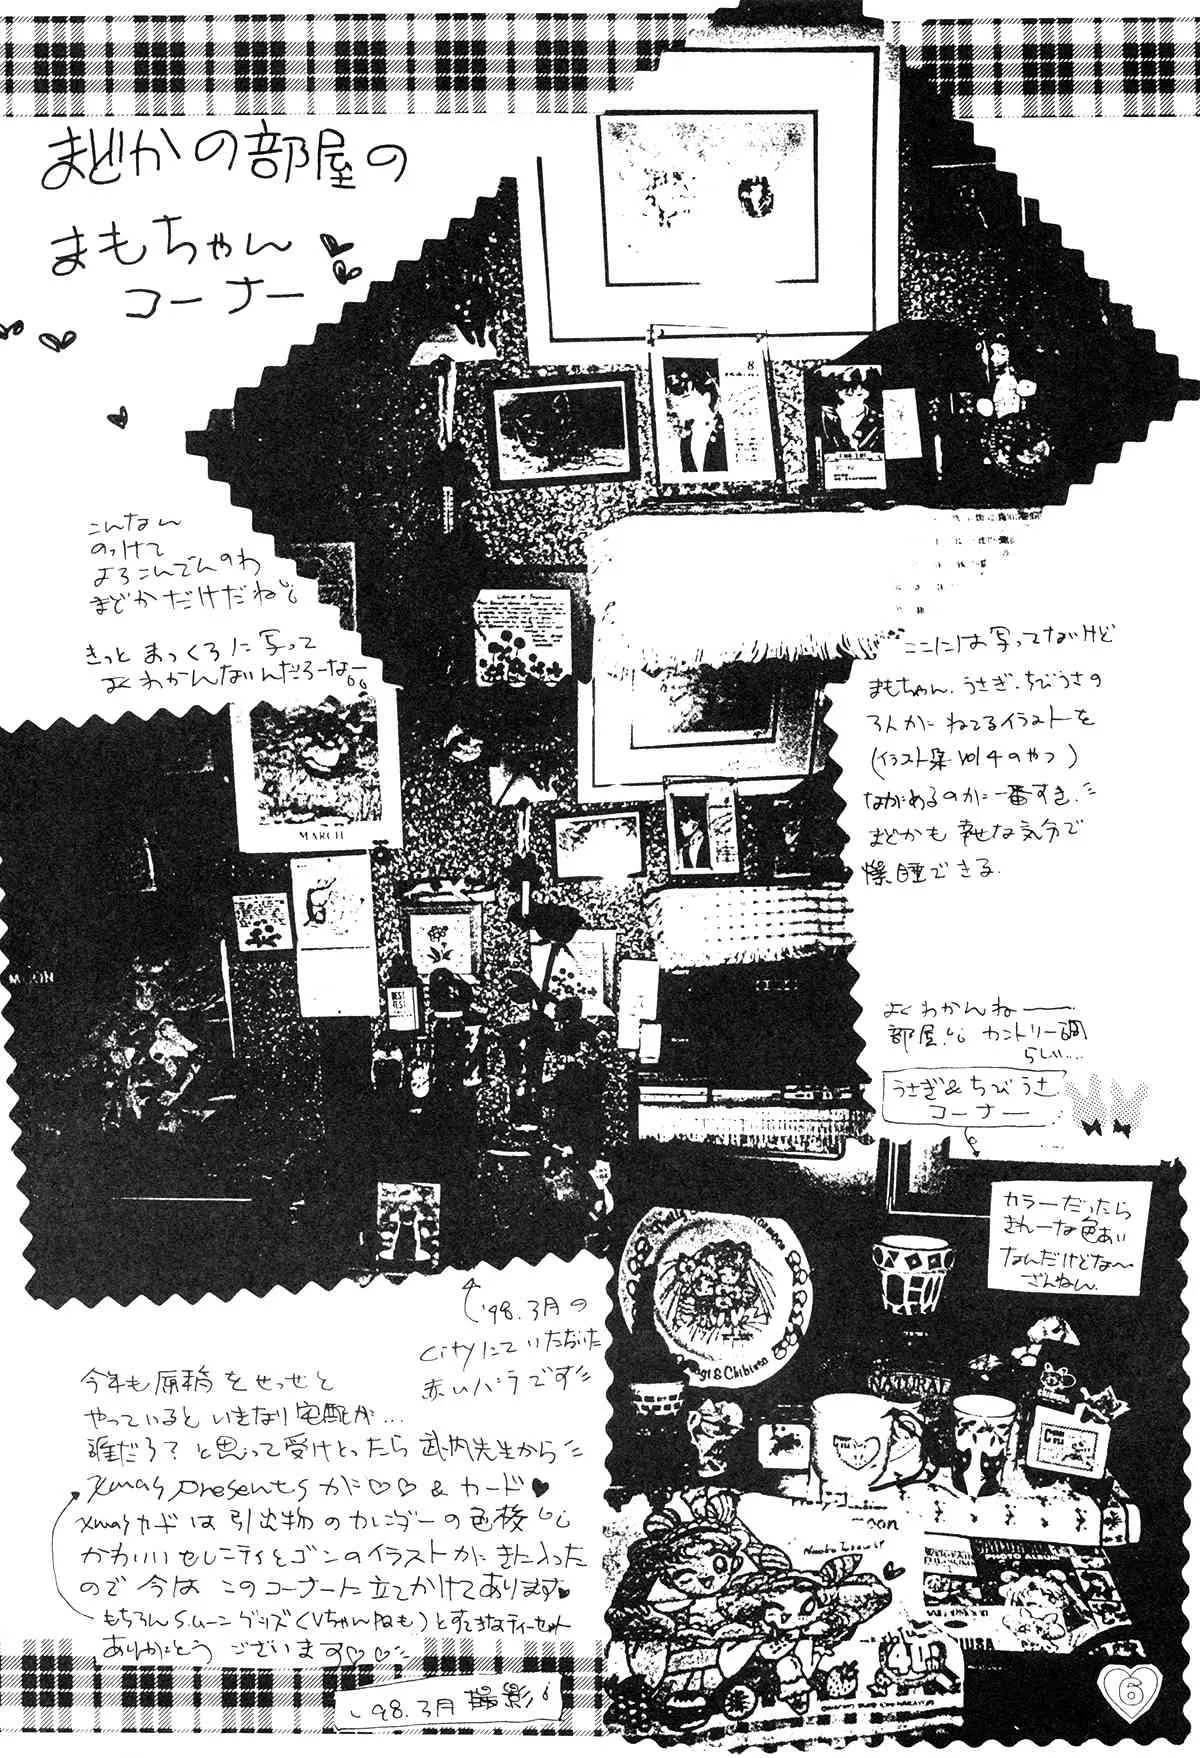 まどかの部屋の
まもちゃん
コーナー
こんなん
のっけて
よろこんでんのわ
まどかだけだね
きっと まっくろに写って
よくわかんないんだろーなー
ここには写ってないけど
まもちゃん、うさぎ、ちびうさの
3人が ねてるイラストを
(イラスト集 vol 4 のやつ)
ながめるのが一番すき
まどかも 幸せな気分で
爆睡できる
よくわかんねー
部屋 カントリー調
らしい…
うさぎ&ちびうさ
コーナー
カラーだったら
きれーな色あい
なんだけどな〜
ざんねん
MARCH
8
MOON
BEST
TEST
Usagi & Chibiusa
NATURAL
moon
PHOTO ALBUM
'98.3月の
cityにていただいた
赤いバラです
今年も原稿をせっせと
やっていると いきなり宅配が…
誰だろ?と思って受けとったら 武内先生から
Xmas presentsが♡♡ & カード♥
Xmasカードは 引出物のカレンダーの色校
かわいいセレニティとゴンのイラストが きに入った
ので 今は このコーナーに立てかけてあります♥
もちろんS.ムーングッズ(Vちゃんねも)とすてきなティーセット
ありがとう ございます♡♡
'98.3月 撮影
6